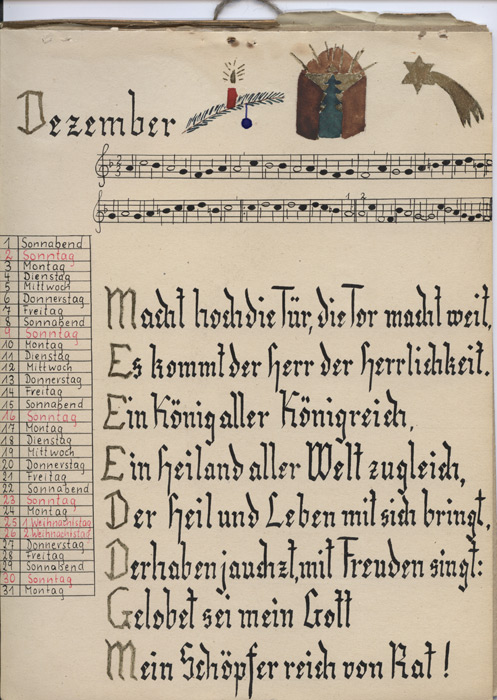 Dezember
1 2
1 Sonnabend
2 Sonntag
3 Montag
4 Dienstag
5 Mittwoch
6 Donnerstag
7 Freitag
8 Sonnabend
9 Sonntag
10 Montag
11 Dienstag
12 Mittwoch
13 Donnerstag
14 Freitag
15 Sonnabend
16 Sonntag
17 Montag
18 Dienstag
19 Mittwoch
20 Donnerstag
21 Freitag
22 Sonnabend
23 Sonntag
24 Montag
25 1 Weihnachtstag
26 2 Weihnachtstag
27 Donnerstag
28 Freitag
29 Sonnabend
30 Sonntag
31 Montag
Macht hoch die Tür, die Tor macht weit,
Es kommt der Herr der Herrlichkeit.
Ein König aller Königreich,
Ein Heiland aller Welt zugleich,
Der Heil und Leben mit sich bringt,
Derhaben jauchzt, mit Freuden singt:
Gelobet sei mein Gott
Mein Schöpfer reich von Rat!